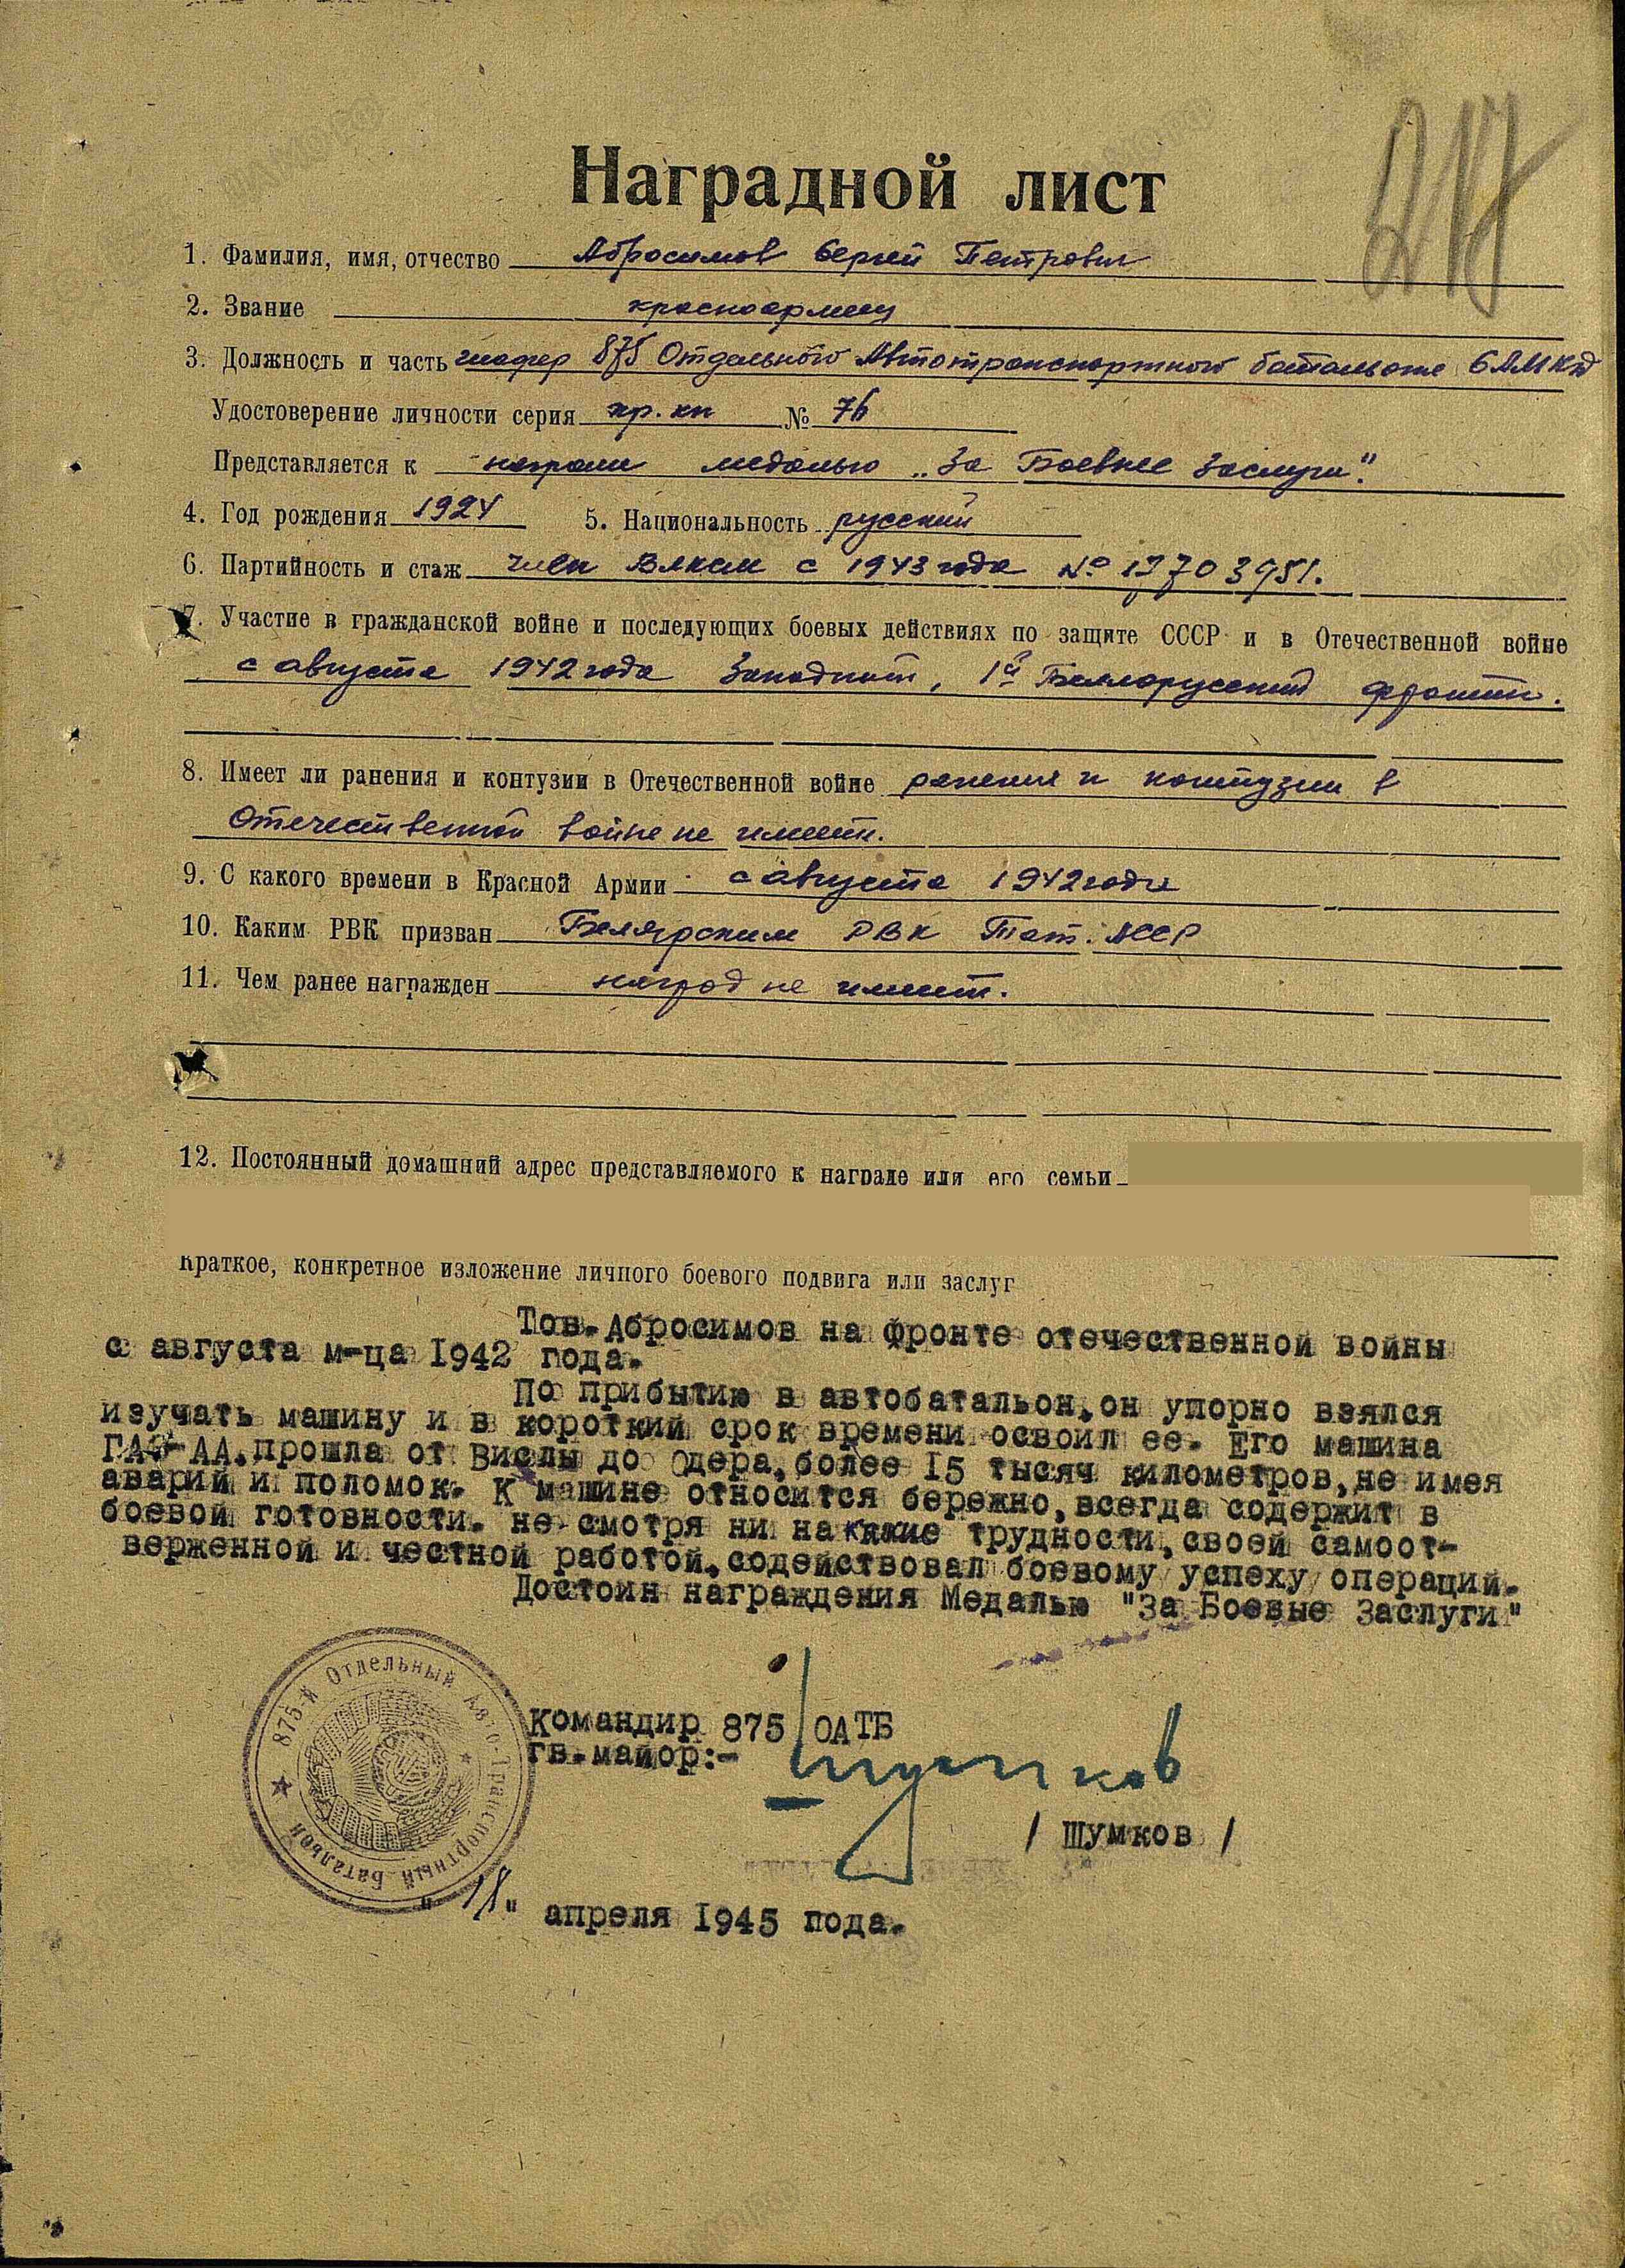 Наградной лист
1. Фамилия, имя, отчество Абросимов Сергей Петрович
2. Звание красноармеец
3. Должность и часть шофер 875 Отдельного Автотранспортного батальона 6 АМКД
Удостоверение личности серия кр. кн № 76
Представляется к медалью „За Боевые Заслуги".
4. Год рождения 1924 5. Национальность русский
6. Партийность и стаж член ВЛКСМ с 1943 года №
7. Участие в гражданской войне и последующих боевых действиях по защите СССР и в Отечественной войне
с августа 1942 года Западный, 1й Белорусский фронты.
8. Имеет ли ранения и контузии в Отечественной войне ранения и контузии в
Отечественной войне не имеет.
9. С какого времени в Красной Армии с августа 1942 года
10. Каким РВК призван Белярским РВК Тат. АССР
11. Чем ранее награжден наград не имеет.
12. Постоянный домашний адрес представляемого к награде или его семьи
Краткое, конкретное изложение личного боевого подвига или заслуг
Тов. Абросимов на фронте отечественной войны
с августа м-ца 1942 года.
По прибытию в автобатальон, он упорно взялся
изучать машину и в короткий срок времени освоил ее. Его машина
ГАЗ-АА. прошла от Вислы до Одера, более 15 тысяч километров, не имея
аварий и поломок. К машине относится бережно, всегда содержит в
боевой готовности. не смотря ни на какие трудности, своей самоот-
верженной и честной работой, содействовал боевому успеху операций.
Достоин награждения Медалью "За Боевые Заслуги"
875-й Отдельный Авто-Транспортный Батальон
Командир 875 ОАТБ
гв. майор:- Шумков
/ Шумков /
"18" апреля 1945 года.